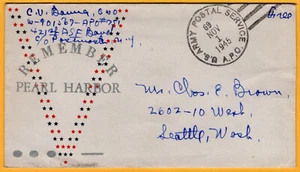 C.V. Bauma, CWO
W-901567-APO#75
421st ASF Band
c/o Postmaster
Free
U.S. ARMY POSTAL SERVICE
NOV
1
1945
A.P.O.
REMEMBER
PEARL HARBOR
Mr. Chas. E. Brown,
2602-10 West,
Seattle, Wash.